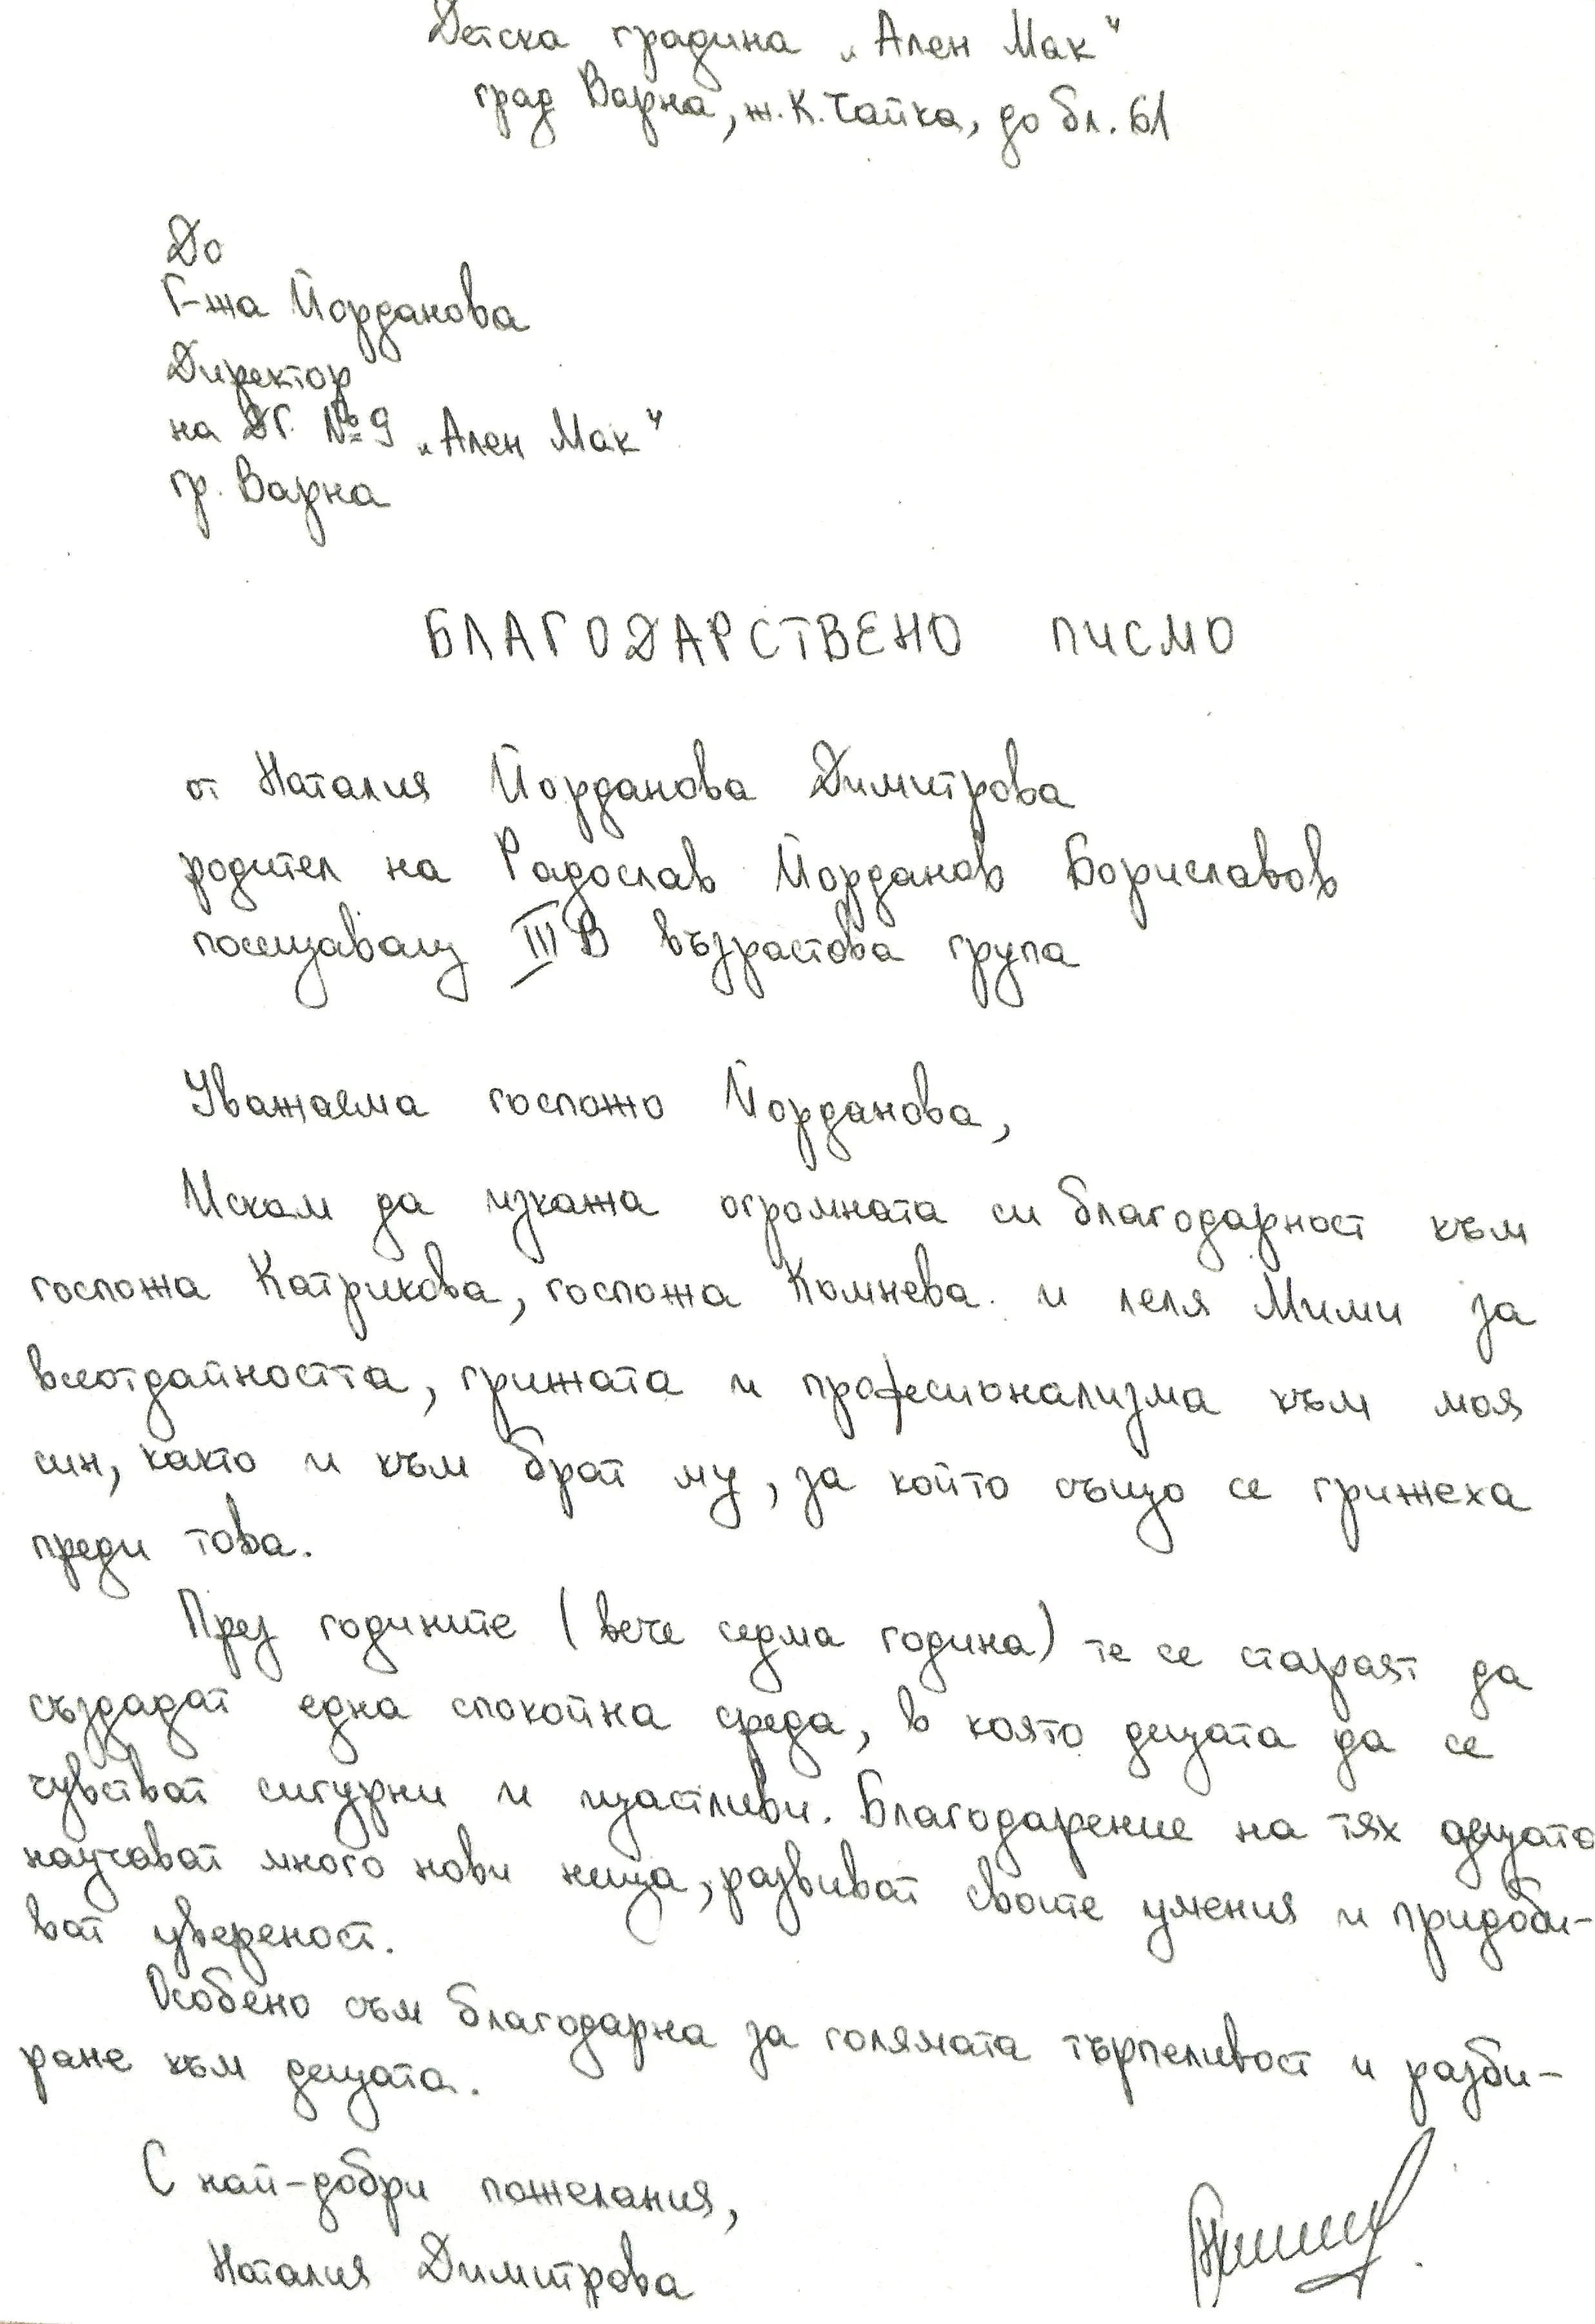 Детска градина „Ален Мак"
град Варна, ж.к. Чайка, до бл. 61
До
Г-жа Йорданова
Директор
на ДГ №9 „Ален Мак"
гр. Варна
БЛАГОДАРСТВЕНО ПИСМО
от Наталия Йорданова Димитрова
родител на Радослав Йорданов Бориславов
посещаващ III В възрастова група
Уважаема госпожо Йорданова,
Искам да изкажа огромната си благодарност към
госпожа Катрикова, госпожа Комнева и леля Мими за
всеотдайността, грижата и професионализма към моя
син, както и към брат му, за който също се грижеха
преди това.
През годините (вече седма година) те се стараят да
създадат една спокойна среда, в която децата да се
чувстват сигурни и щастливи. Благодарение на тях децата
научават много нови неща, развиват своите умения и придоби-
ват увереност.
Особено съм благодарна за голямата търпеливост и разби-
ране към децата.
С най-добри пожелания,
Наталия Димитрова